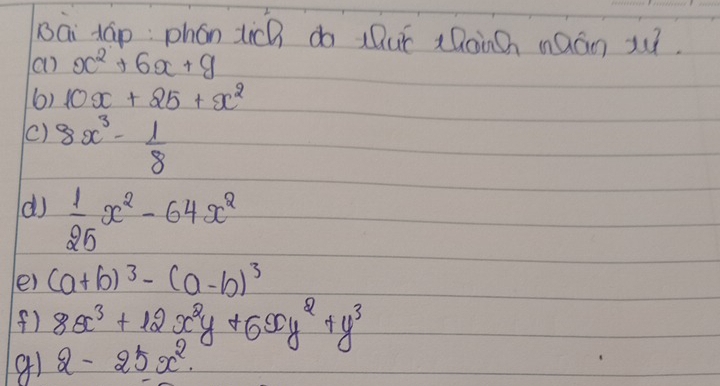 Bài tập : phân tích đa thức thành nhân tử.
a) x² + 6x + 9
b) 10x + 25 + x²
c) 8x³ - 1/8
d) 1/25 x² - 64x²
e) (a+b)³ - (a-b)³
f) 8x³ + 12x²y + 6xy² + y³
g) 2 - 25x².